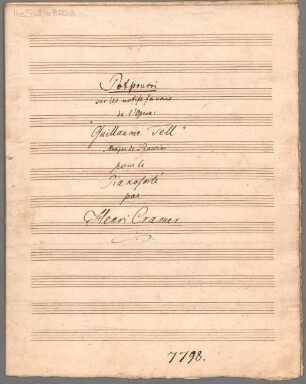 Potpourri
sur les motifs favoris
de l'Opera:
"Guillaume Tell"
de Rossini
pour le
Pianoforté
par
Henri Cramer
7798.